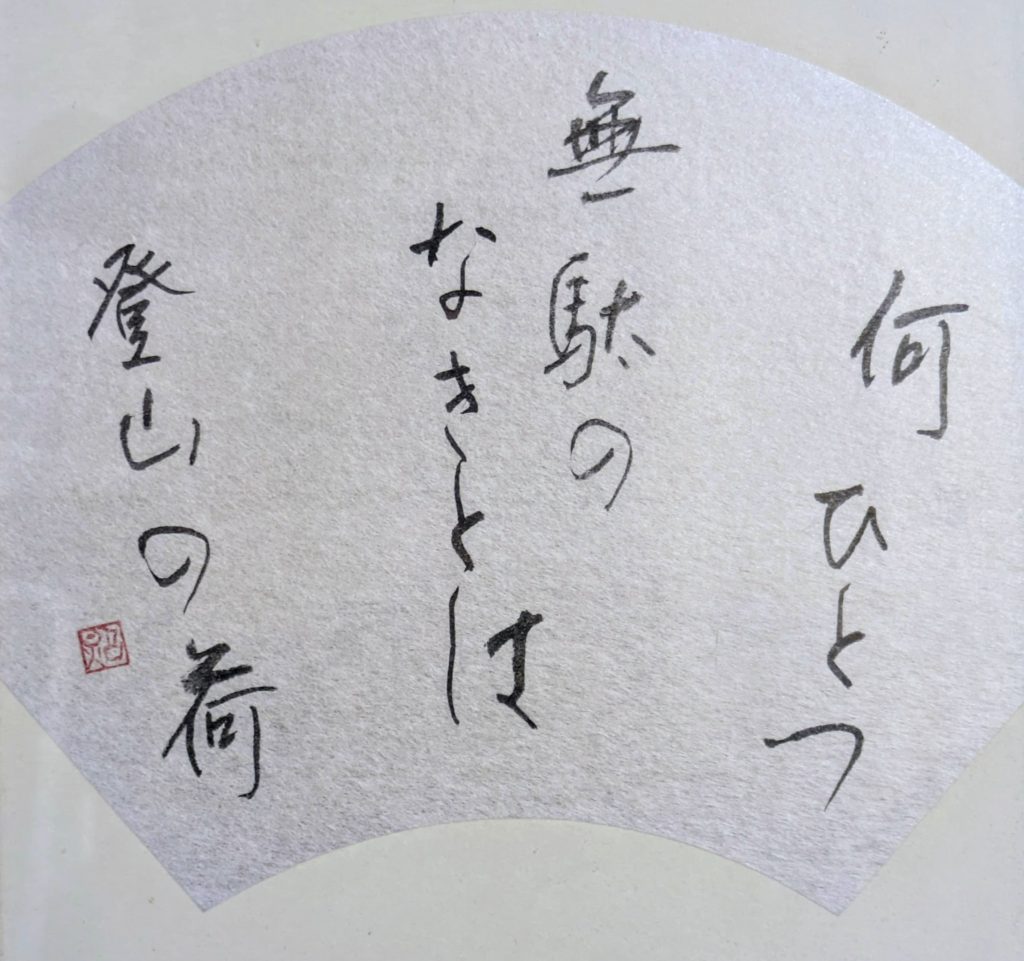 何ひとつ
無駄の
なきとは
登山の荷